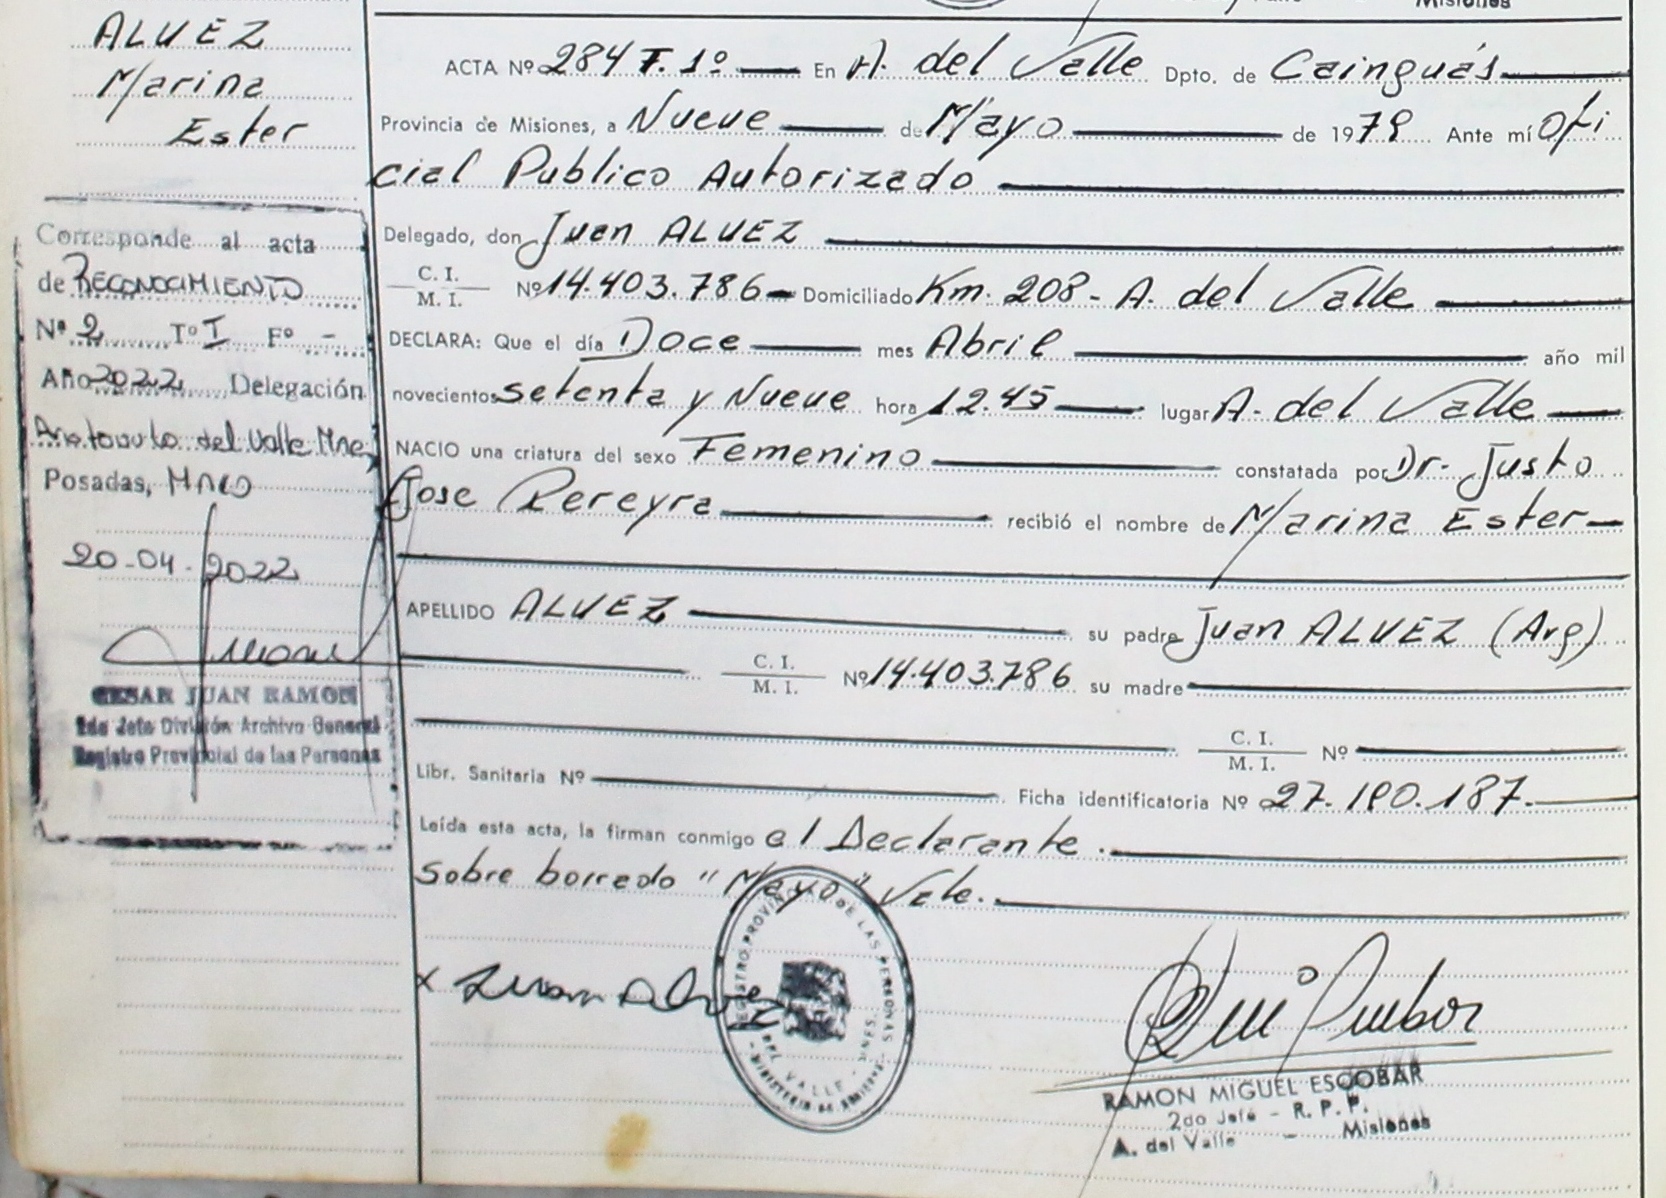 ALVEZ
Marina
Ester
Corresponde al acta
de RECONOCIMIENTO
Nº 2 Tº I Fº -
Año 2022 Delegación
del Valle Mnes
Posadas,
20-04-2022
CESAR JUAN RAMON
2do Jefe División Archivo General
Registro Provincial de las Personas
Misiones
ACTA Nº 284 T. 1º En A. del Valle Dpto. de Cainguás
Provincia de Misiones, a Nueve de Mayo de 1979 Ante mí Ofi
cial Publico Autorizado
Delegado, don Juan ALVEZ
C. I.
M. I. Nº 14.403.786 Domiciliado Km. 208 - A. del Valle
DECLARA: Que el día Doce mes Abril año mil
novecientos setenta y Nueve hora 12.45 lugar A. del Valle
NACIO una criatura del sexo Femenino constatada por Dr. Justo
Jose Pereyra recibió el nombre de Marina Ester
APELLIDO ALVEZ su padre Juan ALVEZ (Arg)
C. I.
M. I. Nº 14.403.786 su madre
C. I.
M. I. Nº
Libr. Sanitaria Nº Ficha identificatoria Nº 27.190.187.
Leída esta acta, la firman conmigo el Declarante.
Sobre borredo "Mayo" Vale.
x Juan Alvez
REGISTRO PROVINCIAL DE LAS PERSONAS
DEL VALLE - MNES.
RAMON MIGUEL ESCOBAR
2do Jefe - R. P. P.
A. del Valle - Misiones